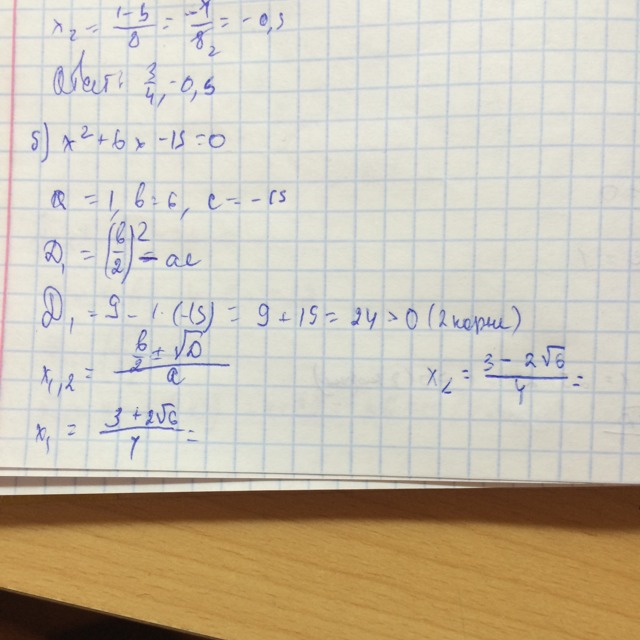 x₂ = (1-5)/8 = (-4)/8₂ = -0,5
Ответ: 3/4, -0,5
б) x² + 6x - 15 = 0
a = 1, b = 6, c = -15
D₁ = (b/2)² - ac
D₁ = 9 - 1·(-15) = 9 + 15 = 24 > 0 (2 корня)
x₁,₂ = (b/2 ± √D)/a
x₁ = (3 + 2√6)/1 =
x₂ = (3 - 2√6)/1 =